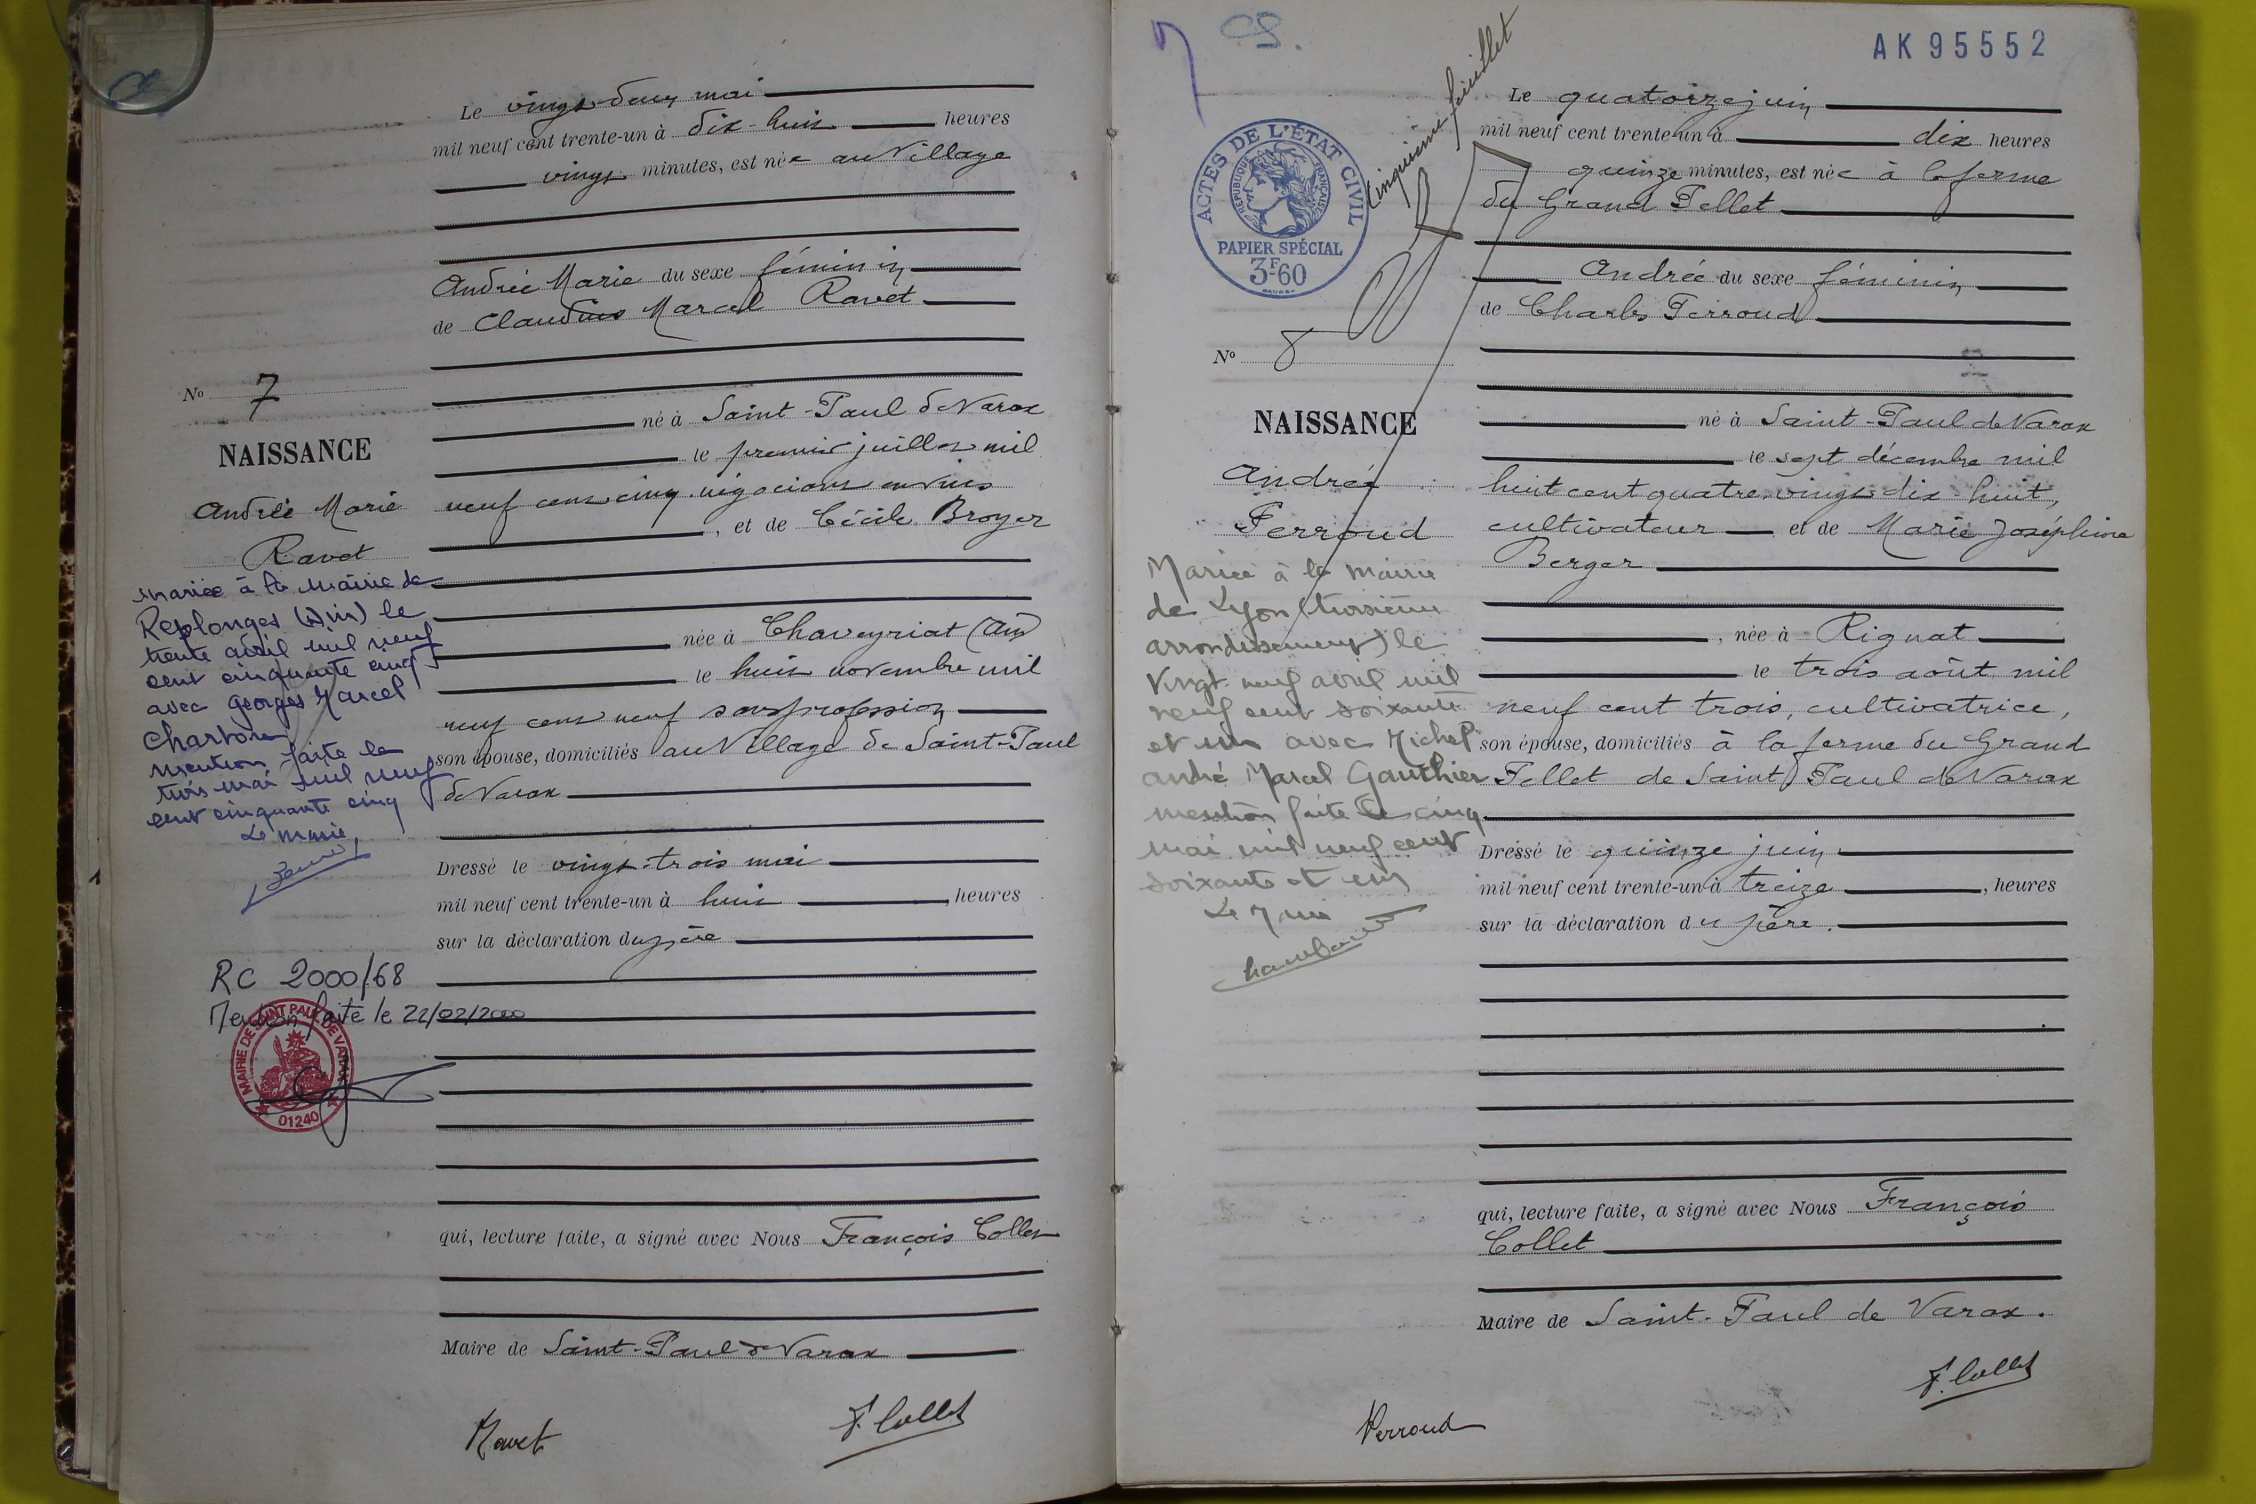 Le vingt-deux mai
mil neuf cent trente-un à dix-huit heures
vingt minutes, est née au Village
Andrée Marie du sexe féminin
de Claudius Marcel Ravet
No 7
né à Saint-Paul de Varax
NAISSANCE
le premier juillet mil
Andrée Marie
neuf cent cinq négociant en vins
, et de Cécile Broyer
Ravet
mariée à la mairie de
Replonges (Ain) le
trente avril mil neuf
cent cinquante cinq
avec Georges Marcel
mention faite le
trois mai mil neuf
cent cinquante cinq
Le maire,
née à Chaveyriat (Ain)
le huit novembre mil
neuf cent neuf sans profession
son épouse, domiciliés au Village de Saint-Paul
de Varax
Dressé le vingt-trois mai
mil neuf cent trente-un à huit heures
sur la déclaration du père
RC 2000/68
Mention faite le 22/02/2000
MAIRIE DE SAINT PAUL DE VARAX
01240
qui, lecture faite, a signé avec Nous François Collet
Maire de Saint-Paul de Varax
Ravet
F. Collet
AK95552
cinquième feuillet
ACTES DE L'ÉTAT CIVIL
RÉPUBLIQUE FRANÇAISE
PAPIER SPÉCIAL
3F60
Le quatorze juin
mil neuf cent trente-un à dix heures
quinze minutes, est née à la ferme
du Grand Fellet
Andrée du sexe féminin
de Charles Perroud
No 8
né à Saint-Paul de Varax
NAISSANCE
le sept décembre mil
Andrée
huit cent quatre-vingt-dix-huit,
Perroud
cultivateur et de Marie Joséphine
Berger
Mariée à la mairie
de Lyon (troisième
arrondissement) le
vingt neuf avril mil
neuf cent soixante
et un avec Michel
andré Marcel Gauthier
mention faite le cinq
mai mil neuf cent
soixante et un
Le Maire
, née à Rignat
le trois août mil
neuf cent trois, cultivatrice,
son épouse, domiciliés à la ferme du Grand
Fellet de Saint Paul de Varax
Dressé le quinze juin
mil neuf cent trente-un à treize, heures
sur la déclaration du père.
qui, lecture faite, a signé avec Nous François
Collet
Maire de Saint-Paul de Varax.
F. Collet
Perroud